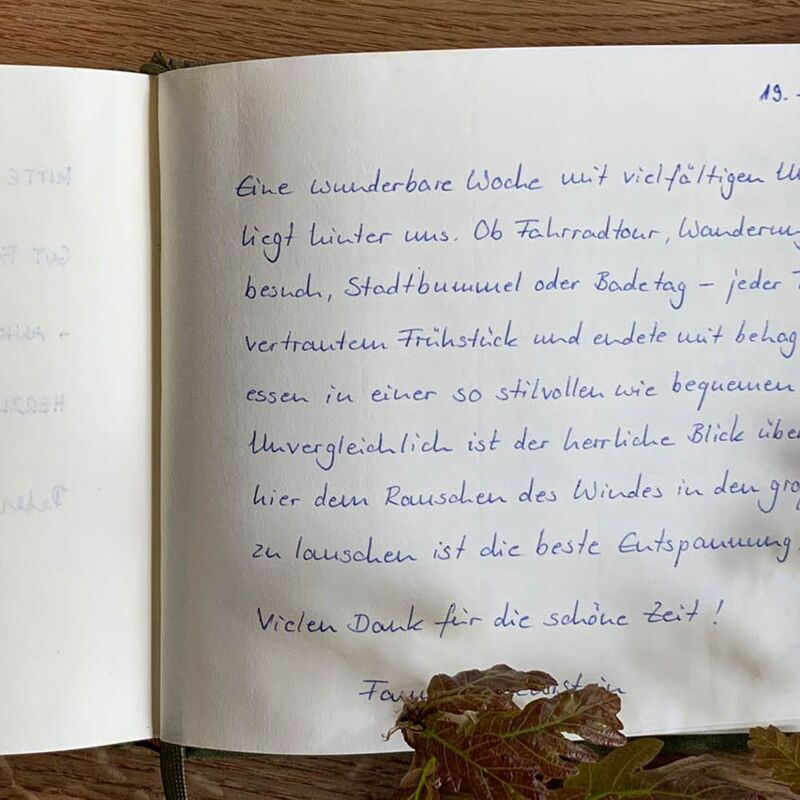 19. -
Eine wunderbare Woche mit vielfältigen
liegt hinter uns. Ob Fahrradtour, Wanderung
besuch, Stadtbummel oder Badetag – jeder
vertrautem Frühstück und endete mit behag
essen in einer so stilvollen wie bequemen
Unvergleichlich ist der herrliche Blick über
hier dem Rauschen des Windes in den groß
zu lauschen ist die beste Entspannung.
Vielen Dank für die schöne Zeit!